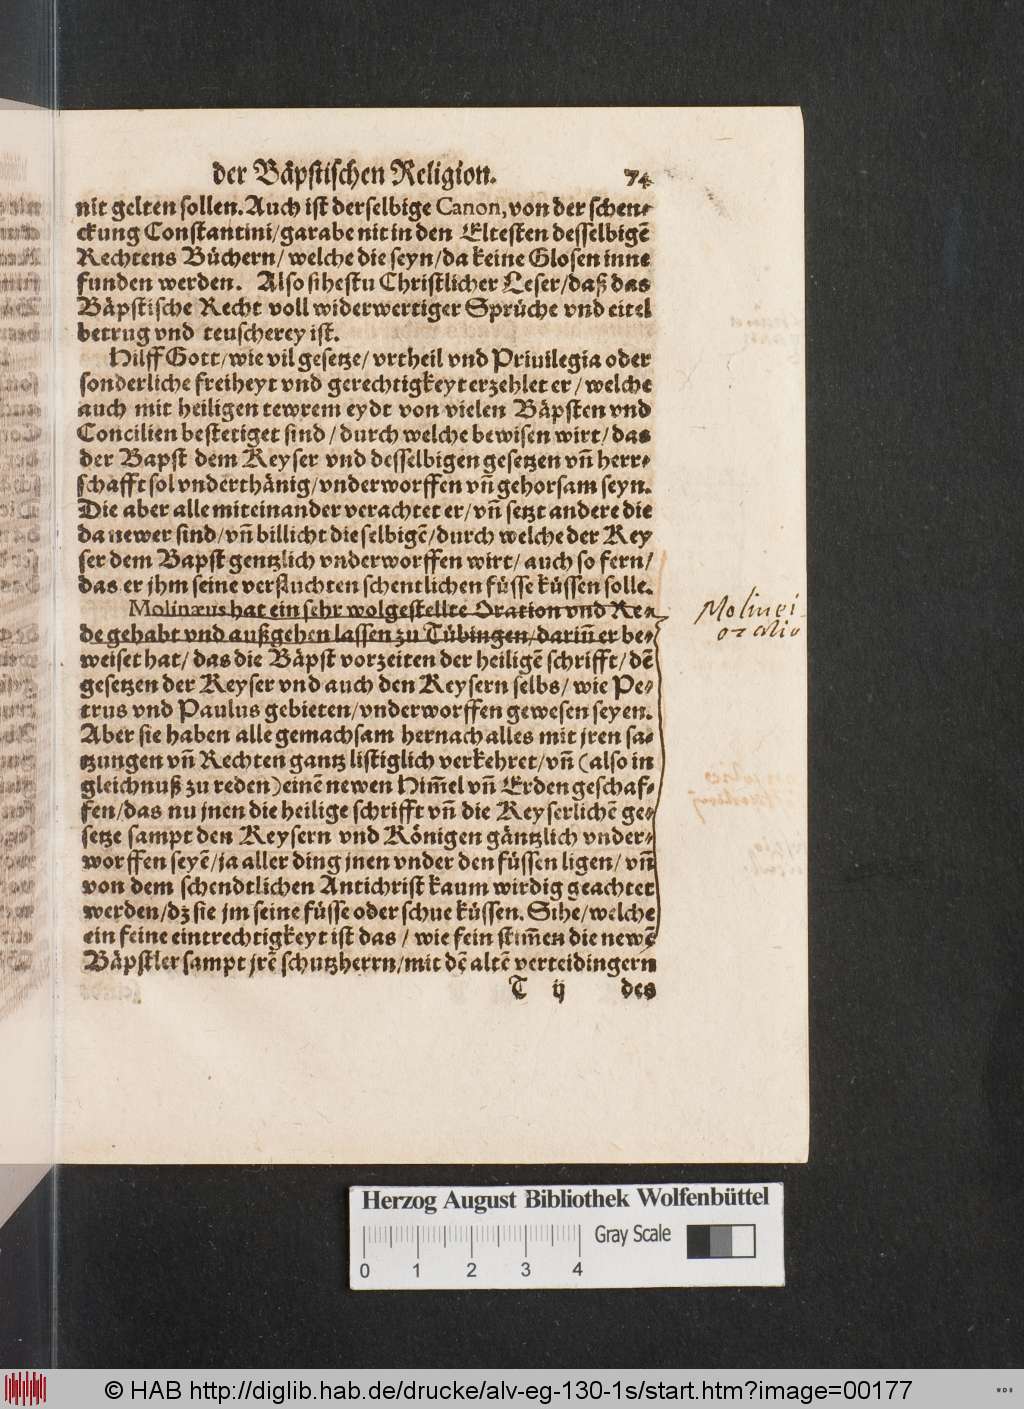 der Bäpstischen Religion. 74
nit gelten sollen. Auch ist derselbige Canon, von der schen-
ckung Constantini/garabe nit in den Eltesten desselbigē
Rechtens Büchern/ welche die seyn/da keine Glosen inne
funden werden. Also sihestu Christlicher Leser/daß das
Bäpstische Recht voll widerwertiger Sprüche vnd eitel
betrug vnd teuscherey ist.
Hilff Gott/wie vil gesetze/ vrtheil vnd Priuilegia oder
sonderliche freiheyt vnd gerechtigkeyt erzehlet er/welche
auch mit heiligen tewrem eydt von vielen Bäpsten vnd
Concilien bestetiget sind/durch welche bewisen wirt/das
der Bapst dem Keyser vnd desselbigen gesetzen vñ herr-
schafft sol vnderthänig/vnderworffen vñ gehorsam seyn.
Die aber alle miteinander verachtet er/vñ setzt andere die
da newer sind/vñ billicht die selbigē/durch welche der Key
ser dem Bapst gentzlich vnderworffen wirt/ auch so fern/
das er jhm seine verfluchten schentlichen füsse küssen solle.
Molinæus hat ein sehr wolgestellte Oration vnd Re-
de gehabt vnd außgehen lassen zu Tübingen/dariñ er be-
weiset hat/das die Bäpst vorzeiten der heiligē schrifft/dē
gesetzen der Keyser vnd auch den Keysern selbs/wie Pe-
trus vnd Paulus gebieten/vnderworffen gewesen seyen.
Aber sie haben alle gemachsam hernach alles mit jren sa-
tzungen vñ Rechten gantz listiglich verkehret/vñ (also in
gleichnuß zu reden) einē newen Him̃el vñ Erden geschaf-
fen/das nu jnen die heilige schrifft vñ die Keyserlichē ge-
setze sampt den Keysern vnd Königen gäntzlich vnder-
worffen seyē/ja aller ding jnen vnder den füssen ligen/vñ
von dem schendtlichen Antichrist kaum wirdig geachtet
werden/dz sie jm seine füsse oder schue küssen. Sihe/welche
ein feine eintrechtigkeyt ist das/wie fein stim̃en die newē
Bäpstler sampt jrē schutzherrn/mit dē altē verteidingern
T ij des
Molinei
oratio
Herzog August Bibliothek Wolfenbüttel
Gray Scale
0 1 2 3 4
© HAB http://diglib.hab.de/drucke/alv-eg-130-1s/start.htm?image=00177